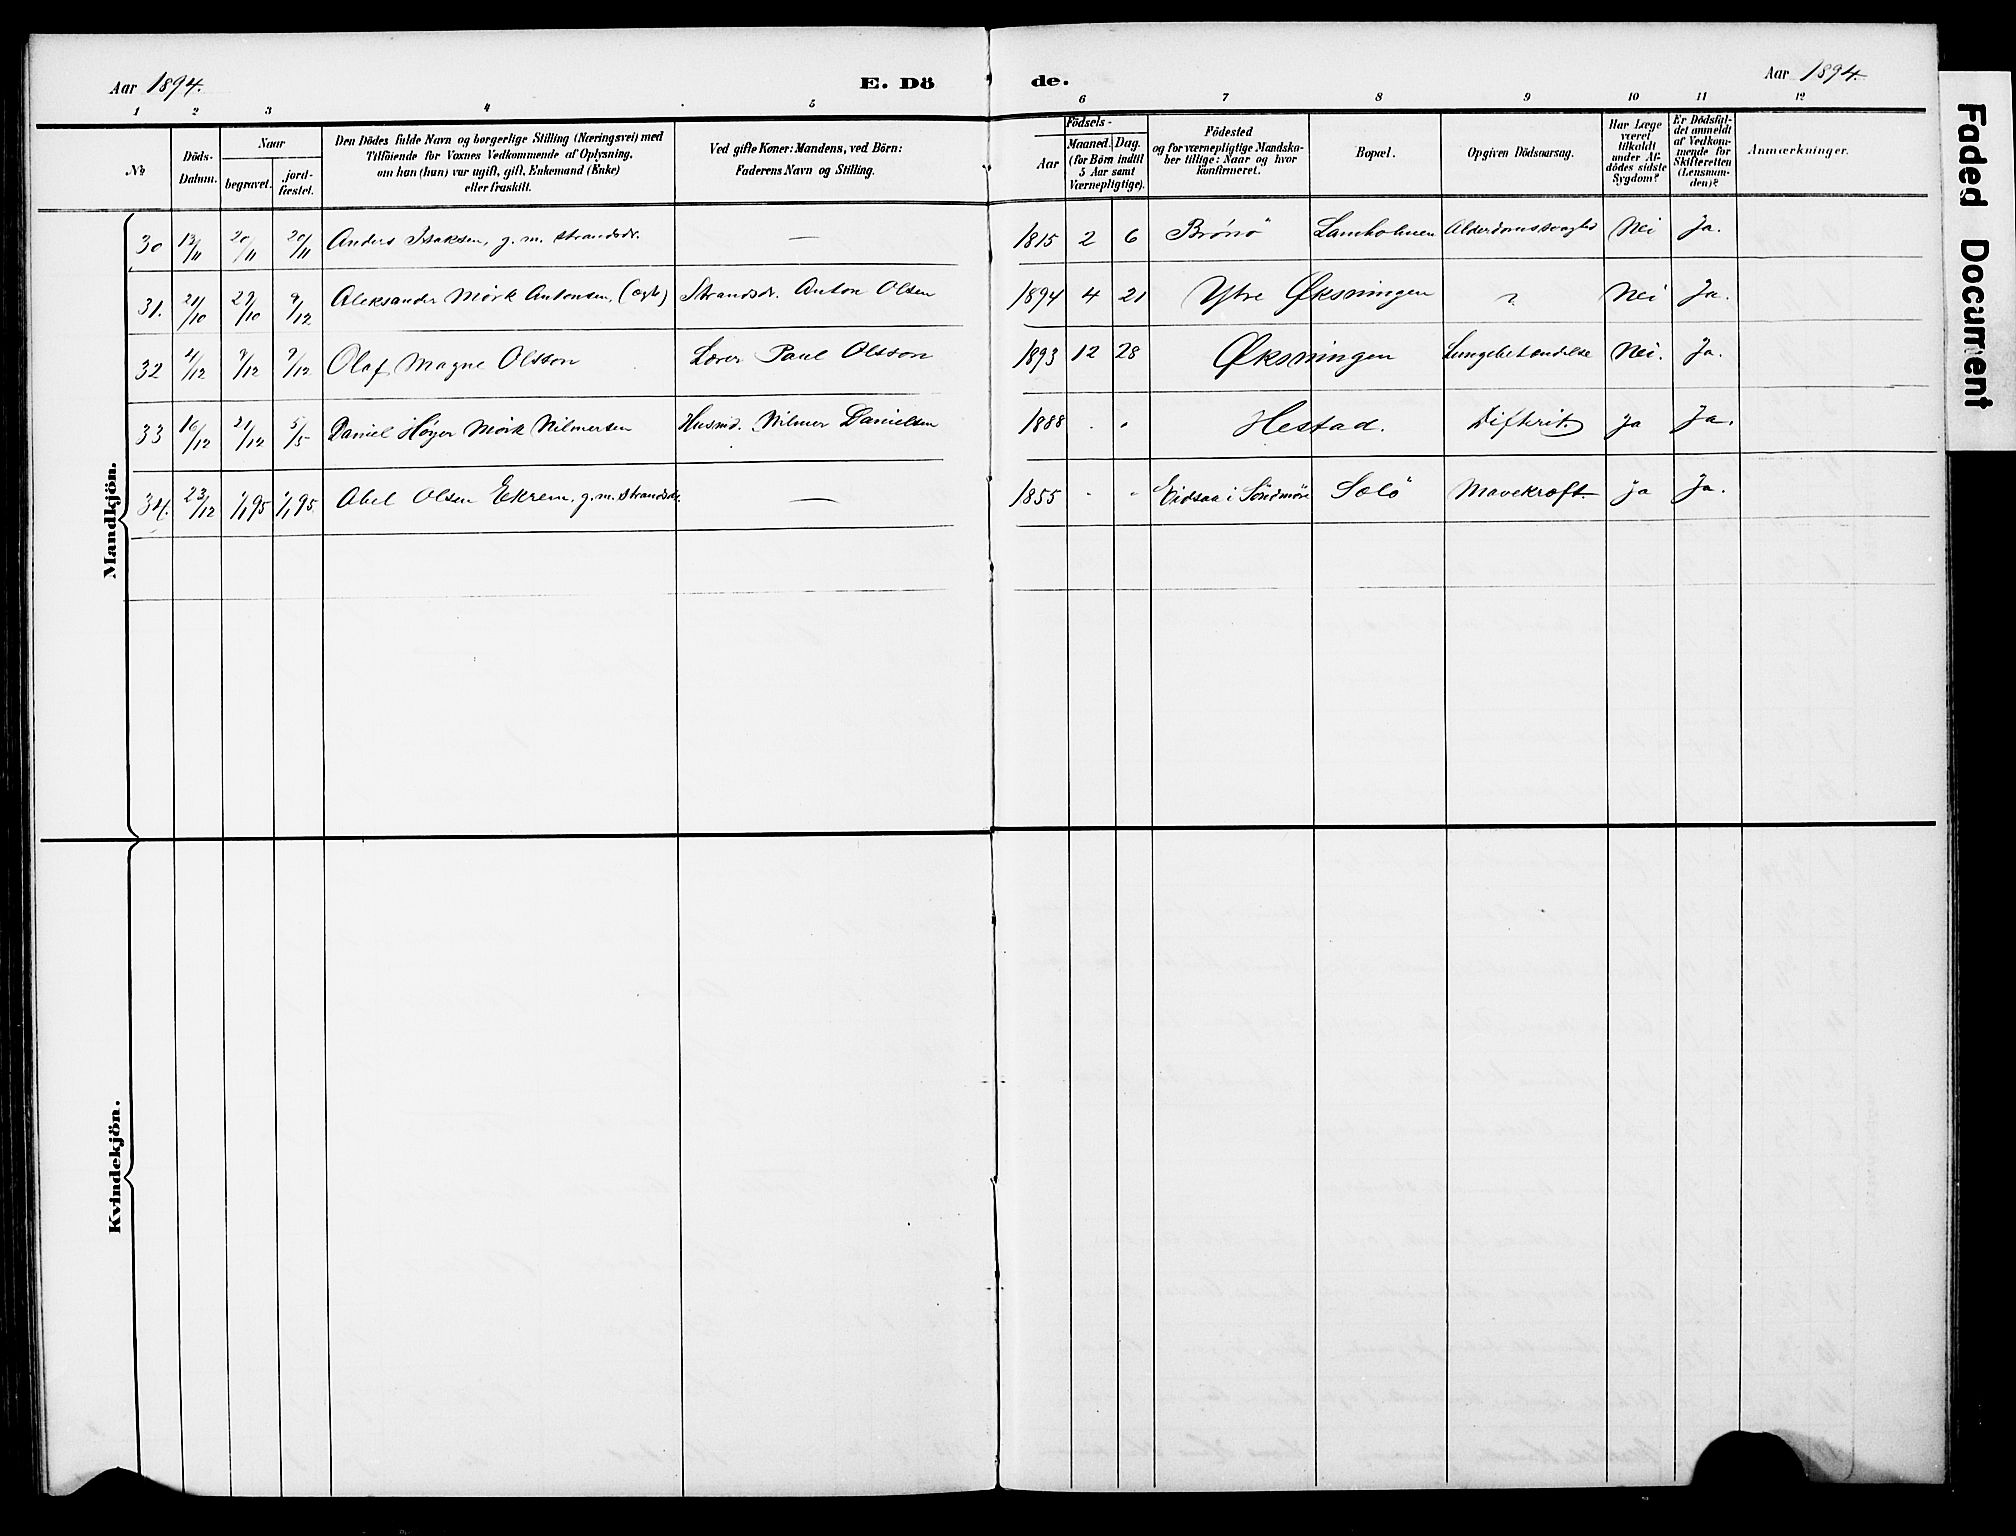 Aar 1894. E. Dö de. Aar 1894.
1 2 3 4 5 6 7 8 9 10 11 12
No
Döds-
Datum.
Naar
begravet.
jord-
fæstet.
Den Dödes fulde Navn og borgerlige Stilling (Næringsvei) med
Tilföiende for Voxnes Vedkommende af Oplysning,
om han (hun) var ugift, gift, Enkemand (Enke)
eller fraskilt.
Ved gifte Koner: Mandens, ved Börn:
Faderens Navn og Stilling.
Födsels-
Aar
Maaned.
Dag.
(for Børn indtil
5 Aar samt
Værnepligtige).
Födested
og for værnepligtige Mandska-
ber tillige: Naar og hvor
konfirmeret.
Bopæl.
Opgiven Dödsaarsag.
Har Læge
været
tilkaldt
under Af-
dödes sidste
Sygdom?
Er Dödsfal-
det anmeldt
af Vedkom-
mende for
Skifteretten
(Lensman-
den)?
Anmærkninger.
Mandkjön.
30 13/11 20/11 20/11 Anders Isaksen, g. m. strandsdr. — 1815 2 6 Brönö Lamholmen Alderdomssvaghed Nei Ja.
31. 21/10 29/10 9/12 Aleksander Mørk Antonsen, (ægte) Strandsdr. Anton Olsen 1894 4 21 Ytre Øksningen ? Nei Ja.
32 4/12 9/12 9/12 Olaf Magne Olsson Lærer Paul Olsson 1893 12 28 Øksningen Lungebetændelse Nei. Ja.
33 16/12 21/12 5/5 Daniel Høyer Mørk Nilmersen Husmd. Nilmer Danielsen 1888 . „ Hestad. Difterit. Ja Ja.
34. 23/12 1/1 95 1/1 95. Abel Olsen Ekrem, g. m. Strandsdr. — 1855 „ „ Eidsaa i Söndmöre Solö Mavekræft. Ja Ja.
Kvindekjön.
Faded Document